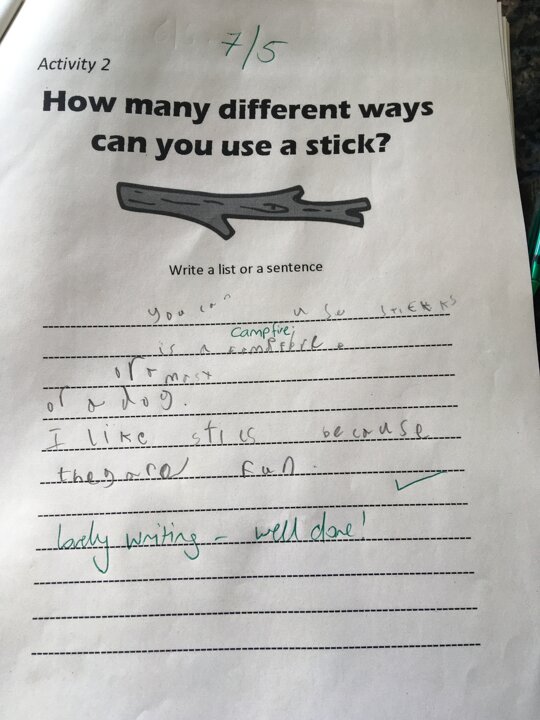 7/5
Activity 2
How many different ways
can you use a stick?
Write a list or a sentence
you can use stickks
Campfire
is a
or a
or a dog.
I like stics because
fun.
lovely writing - well done!